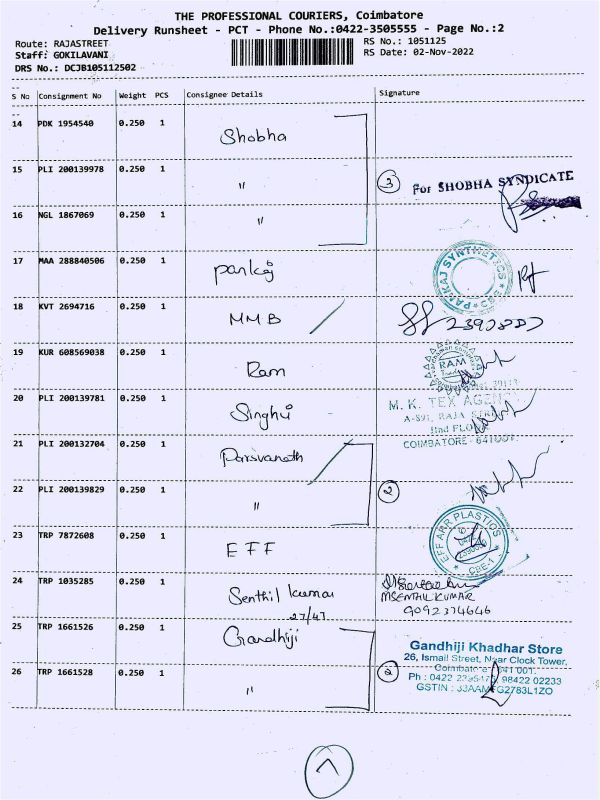 THE PROFESSIONAL COURIERS, Coimbatore
Delivery Runsheet - PCT - Phone No.:0422-3505555 - Page No.:2
Route: RAJASTREET
Staff: GOKILAVANI
DRS No.: DCJB105112502
RS No.: 1051125
RS Date: 02-Nov-2022
S No Consignment No Weight PCS Consignee Details Signature
14 PDK 1954540 0.250 1 Shobha
15 PLI 200139978 0.250 1 " 3 For SHOBHA SYNDICATE
16 NGL 1867069 0.250 1 "
17 MAA 288840506 0.250 1 Pankaj PANRAJ SYNTHETICS CBE
18 KVT 2694716 0.250 1 MMB
19 KUR 608569038 0.250 1 Ram RAM
20 PLI 200139781 0.250 1 Singhvi M. K. TEX AGENCY
A-891, RAJA STREET
IInd FLOOR
COIMBATORE - 641001.
21 PLI 200132704 0.250 1 Parsvanath
22 PLI 200139829 0.250 1 " 2
23 TRP 7872608 0.250 1 EFF EFF ARR PLASTICS CBE-1
24 TRP 1035285 0.250 1 Senthil kumar
27/47
MSENTHILKUMAR
9092374646
25 TRP 1661526 0.250 1 Gandhiji Gandhiji Khadhar Store
26, Ismail Street, Near Clock Tower,
Coimbatore - 641 001.
26 TRP 1661528 0.250 1 " 2 Ph : 0422 98422 02233
GSTIN : 33AAMFG2783L1ZO